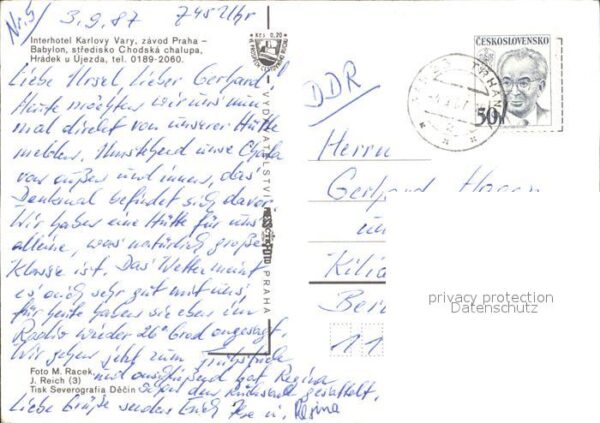 Nr. 5) 3.9.87 745 Uhr
Interhotel Karlovy Vary, závod Praha –
Babylon, středisko Chodská chalupa,
Hrádek u Újezda, tel. 0189-2060.
Liebe Ursel lieber Gerhard
Heute möchten wir uns nun
mal direkt von unserer Hütte
melden. Umstehend unsere
von außen und innen, das
Denkmal befindet sich davor.
Wir haben eine Hütte für uns
alleine, was natürlich große
Klasse ist. Das Wetter meint
es auch sehr gut mit uns,
für heute haben sie eben im
Radio wieder 26° Grad angesagt.
Wir gehen jetzt zum Frühstück
und anschließend hat Regina
Foto M. Racek,
J. Reich (3)
Tisk Severografia Děčín
die Rückseite gestaltet.
Liebe Grüße senden Erich u. Regina
Kčs 0,20
VYDAVATELSTVÍ
PRAHA
ČESKOSLOVENSKO
50h
DDR
Herrn
Gerhard
Kilia
Ber
11
privacy protection
Datenschutz